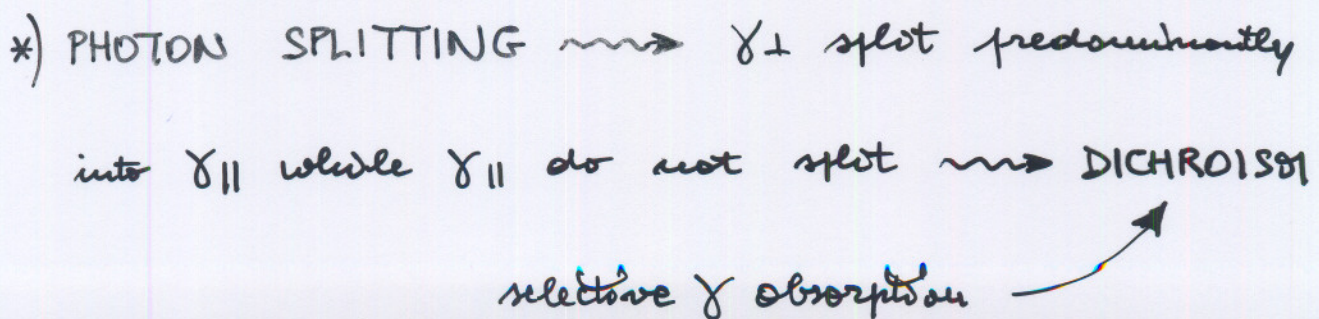 *) PHOTON SPLITTING ⇝ γ⊥ split predominantly
into γ|| while γ|| do not split ⇝ DICHROISM
selective γ absorption